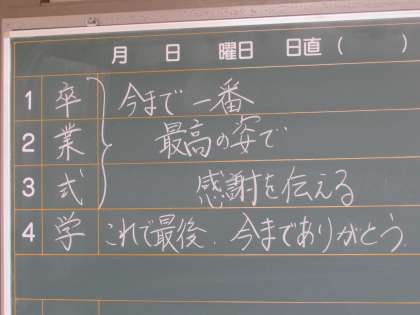 月 日 曜日 日直( )
1 卒 今まで一番
2 業 最高の姿で
3 式 感謝を伝える
4 学 これで最後. 今までありがとう.